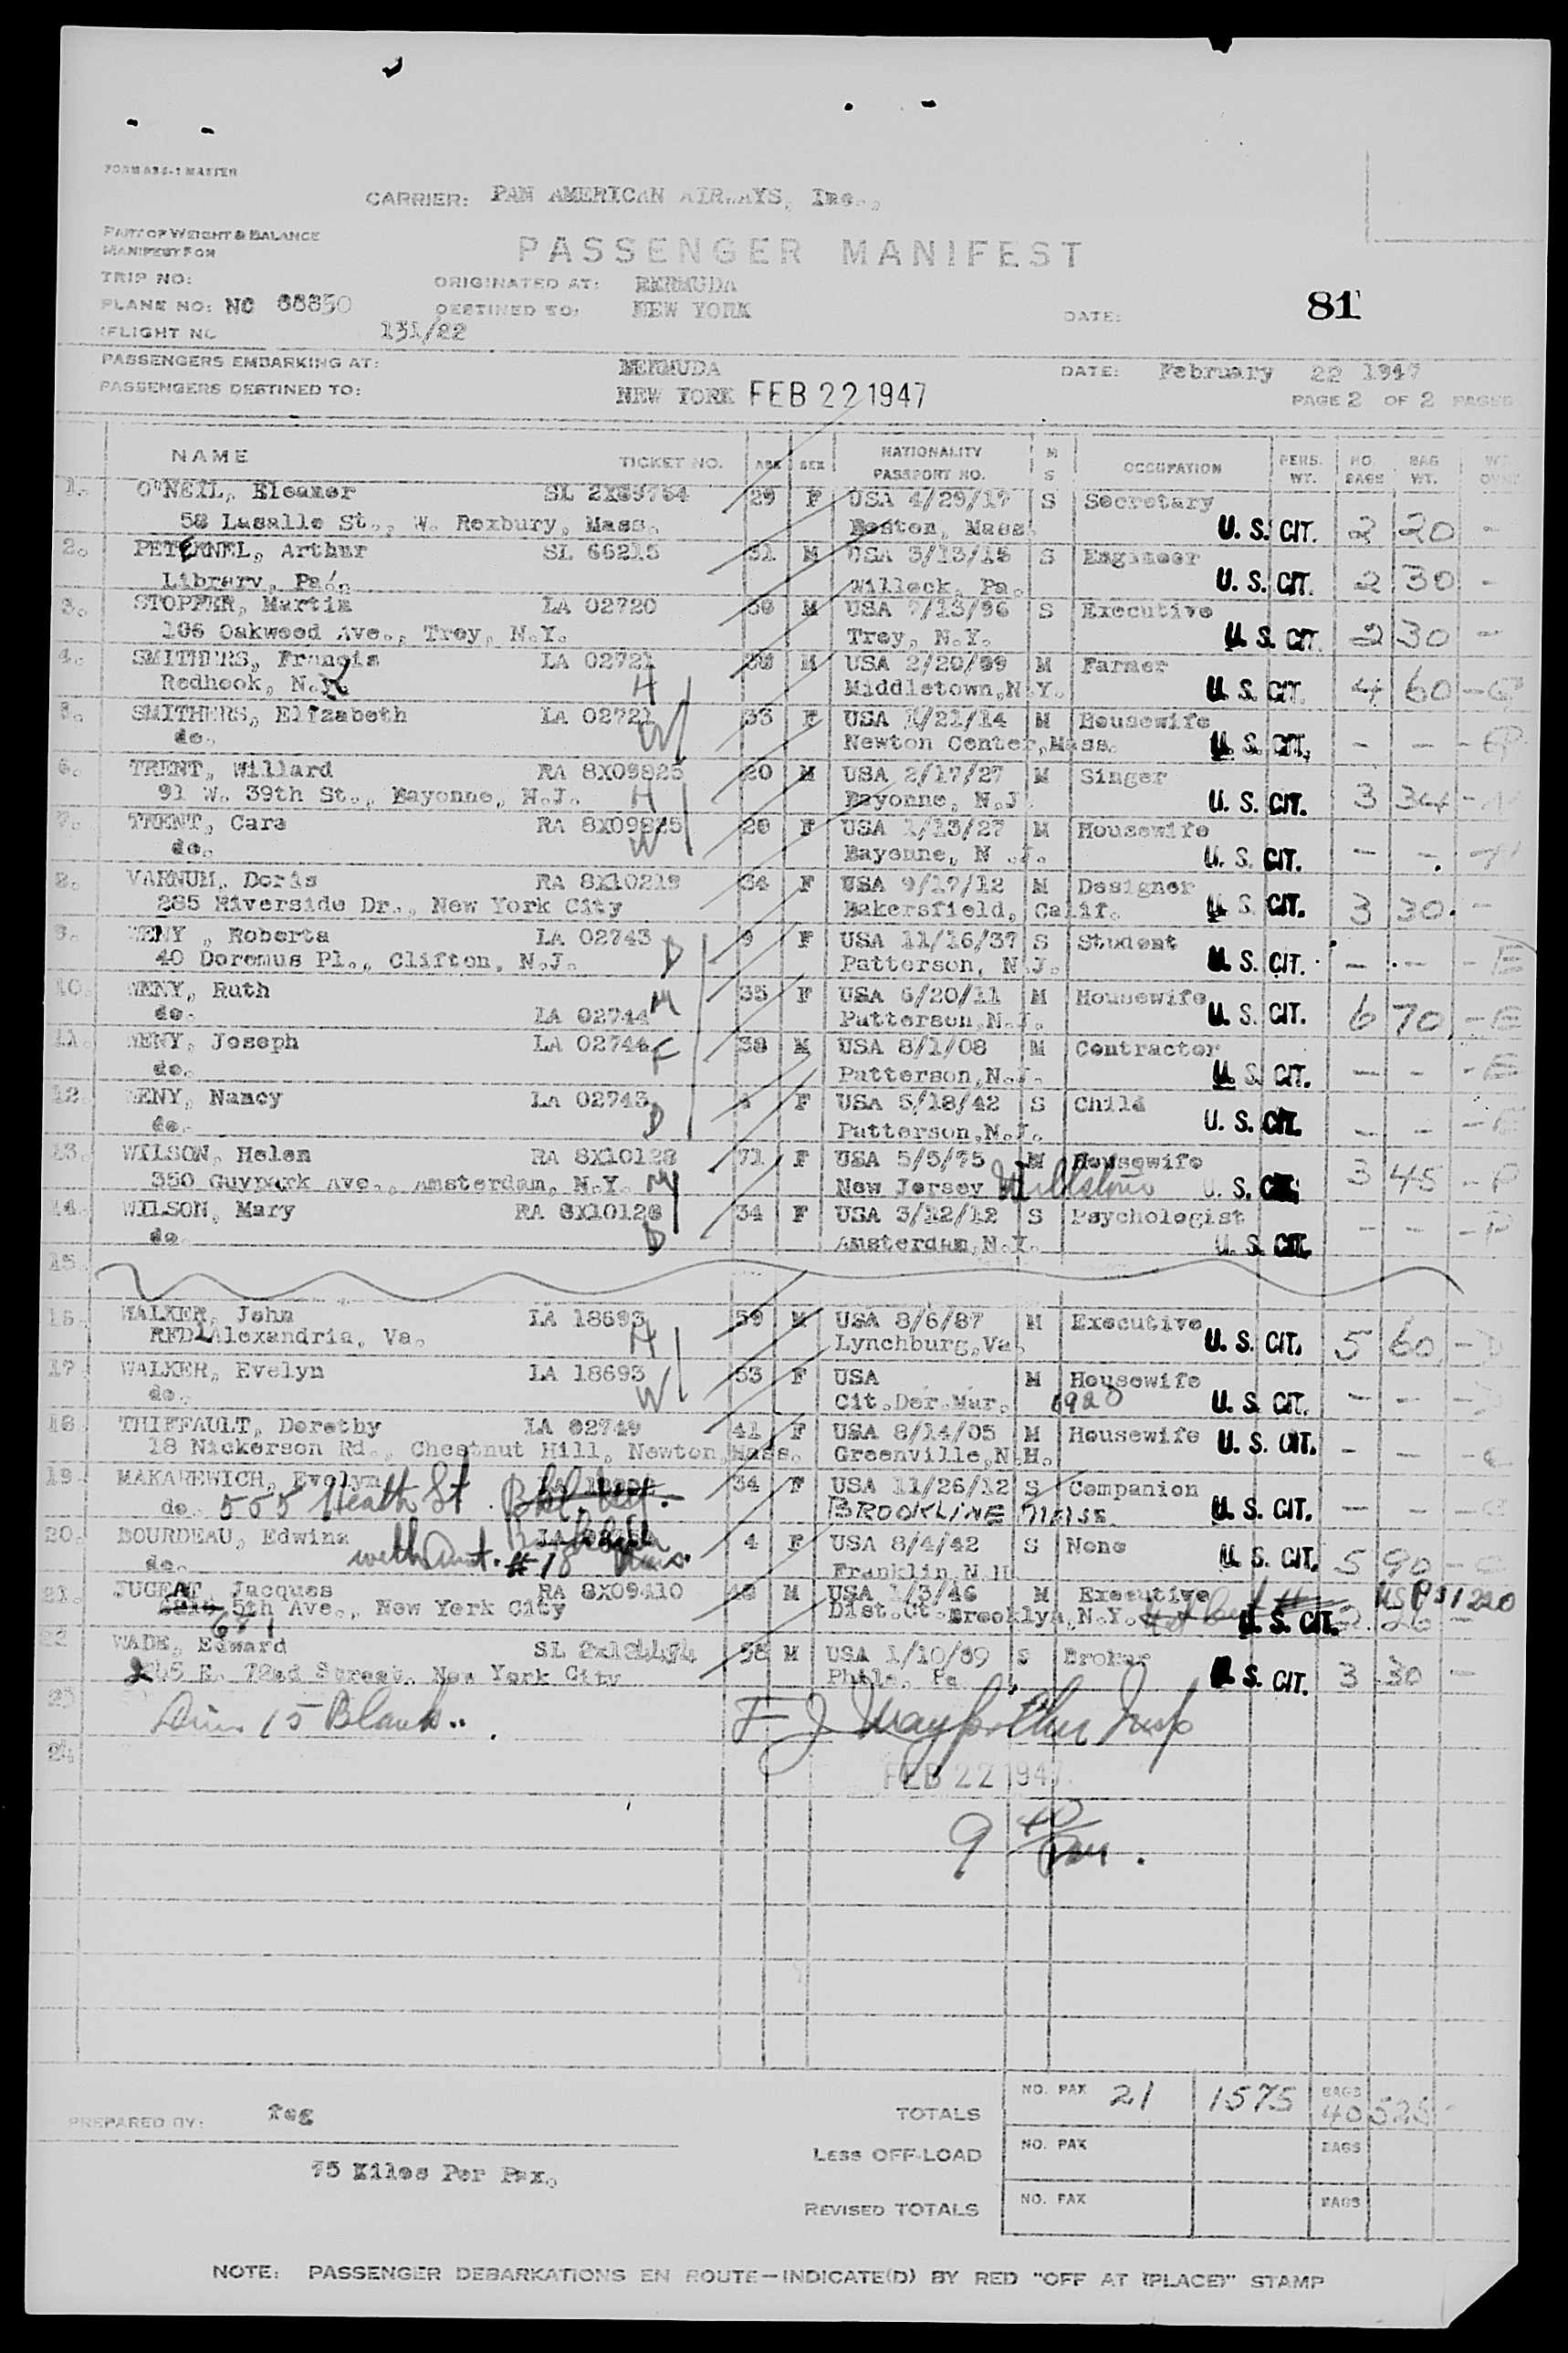 FORM ASS-1 MASTER
CARRIER: PAN AMERICAN AIRWAYS, Inc.,
PART OF WEIGHT & BALANCE
MANIFEST FOR
PASSENGER MANIFEST
TRIP NO: ORIGINATED AT: BERMUDA
PLANE NO: NC 88850 DESTINED TO: NEW YORK DATE: 81
FLIGHT NO 131/22
PASSENGERS EMBARKING AT: BERMUDA DATE: February 22 1947
PASSENGERS DESTINED TO: NEW YORK FEB 22 1947 PAGE 2 OF 2 PAGES
NAME TICKET NO. AGE SEX NATIONALITY PASSPORT NO. M S OCCUPATION PERS. WT. NO. BAGS BAG WT.
1. O'NEIL, Eleanor SL 2X89764 29 F USA 4/29/17 S Secretary
58 Lasalle St., W. Roxbury, Mass. Boston, Mass. U. S. CIT. 2 20 -
2. PETERNEL, Arthur SL 66215 31 M USA 3/13/15 S Engineer
Library, Pa. Willock, Pa. U. S. CIT. 2 30 -
3. STOPFER, Martin LA 02720 50 M USA 7/13/96 S Executive
106 Oakwood Ave., Troy, N.Y. Troy, N.Y. U. S. CIT. 2 30 -
4. SMITHERS, Francis LA 02721 M USA 2/20/09 M Farmer
Redhook, N.Y. H Middletown, N.Y. U. S. CIT. 4 60 -
5. SMITHERS, Elizabeth LA 02721 33 F USA 1/21/14 M Housewife
do. W Newton Center, Mass. U. S. CIT. - - -
6. TRENT, Willard RA 8X09825 20 M USA 2/17/27 M Singer
91 W. 39th St., Bayonne, N.J. H Bayonne, N.J. U. S. CIT. 3 34 -
7. TRENT, Cara RA 8X09825 20 F USA 1/13/27 M Housewife
do. W Bayonne, N.J. U. S. CIT. - - -
8. VARNUM, Doris RA 8X10219 34 F USA 9/17/12 M Designer
285 Riverside Dr., New York City Bakersfield, Calif. U. S. CIT. 3 30 -
9. WENY, Roberta LA 02743 9 F USA 11/16/37 S Student
40 Doremus Pl., Clifton, N.J. D Patterson, N.J. U. S. CIT. - - - E
10. WENY, Ruth 35 F USA 6/20/11 M Housewife
do. LA 02744 M Patterson, N.J. U. S. CIT. 6 70 - E
11. WENY, Joseph LA 02744 F 38 M USA 8/1/08 M Contractor
do. Patterson, N.J. U. S. CIT. - - - E
12. WENY, Nancy LA 02743 4 F USA 5/18/42 S Child
do. D Patterson, N.J. U. S. CIT. - - - E
13. WILSON, Helen RA 8X10128 71 F USA 5/5/75 M Housewife
350 Guypark Ave., Amsterdam, N.Y. M New Jersey Millstone U. S. CIT. 3 45 - P
14. WILSON, Mary RA 8X10128 34 F USA 3/12/12 S Psychologist
do. D Amsterdam, N.Y. U. S. CIT. - - - P
15.
16. WALKER, John LA 18693 59 M USA 8/6/87 M Executive
RFD 2 Alexandria, Va. H Lynchburg, Va. U. S. CIT. 5 60 - D
17. WALKER, Evelyn LA 18693 53 F USA M Housewife
do. W Cit. Der. Mar. 1920 U. S. CIT. - - -
18. THIFFAULT, Dorothy LA 02749 41 F USA 8/14/05 M Housewife
18 Nickerson Rd., Chestnut Hill, Newton, Mass. Greenville, N.H. U. S. CIT. - - -
19. MAKAREWICH, Evelyn 34 F USA 11/26/12 S Companion
do. 555 Heath St. BROOKLINE MASS. U. S. CIT. - - -
20. BOURDEAU, Edwina 4 F USA 8/4/42 S None
do. with Aunt. #18 Franklin, N.H. U. S. CIT. 5 90 -
21. JUGEAT, Jacques RA 8X09410 48 M USA 1/3/46 M Executive
5th Ave., New York City Dist. Ct. Brooklyn, N.Y. U. S. CIT.
22 WADE, Edward SL 38 M USA 1/10/09 S Broker
E. 72nd Street, New York City Phila, Pa U. S. CIT. 3 30 -
23 15 Blank..
24.
FEB 22 1947
9 40 pm.
TOTALS NO. PAX 21 1575 BAGS 40 525 -
PREPARED BY: feg
LESS OFF-LOAD NO. PAX BAGS
75 Kilos Per Pax.
REVISED TOTALS NO. PAX BAGS
NOTE: PASSENGER DEBARKATIONS EN ROUTE—INDICATE(D) BY RED "OFF AT (PLACE)" STAMP